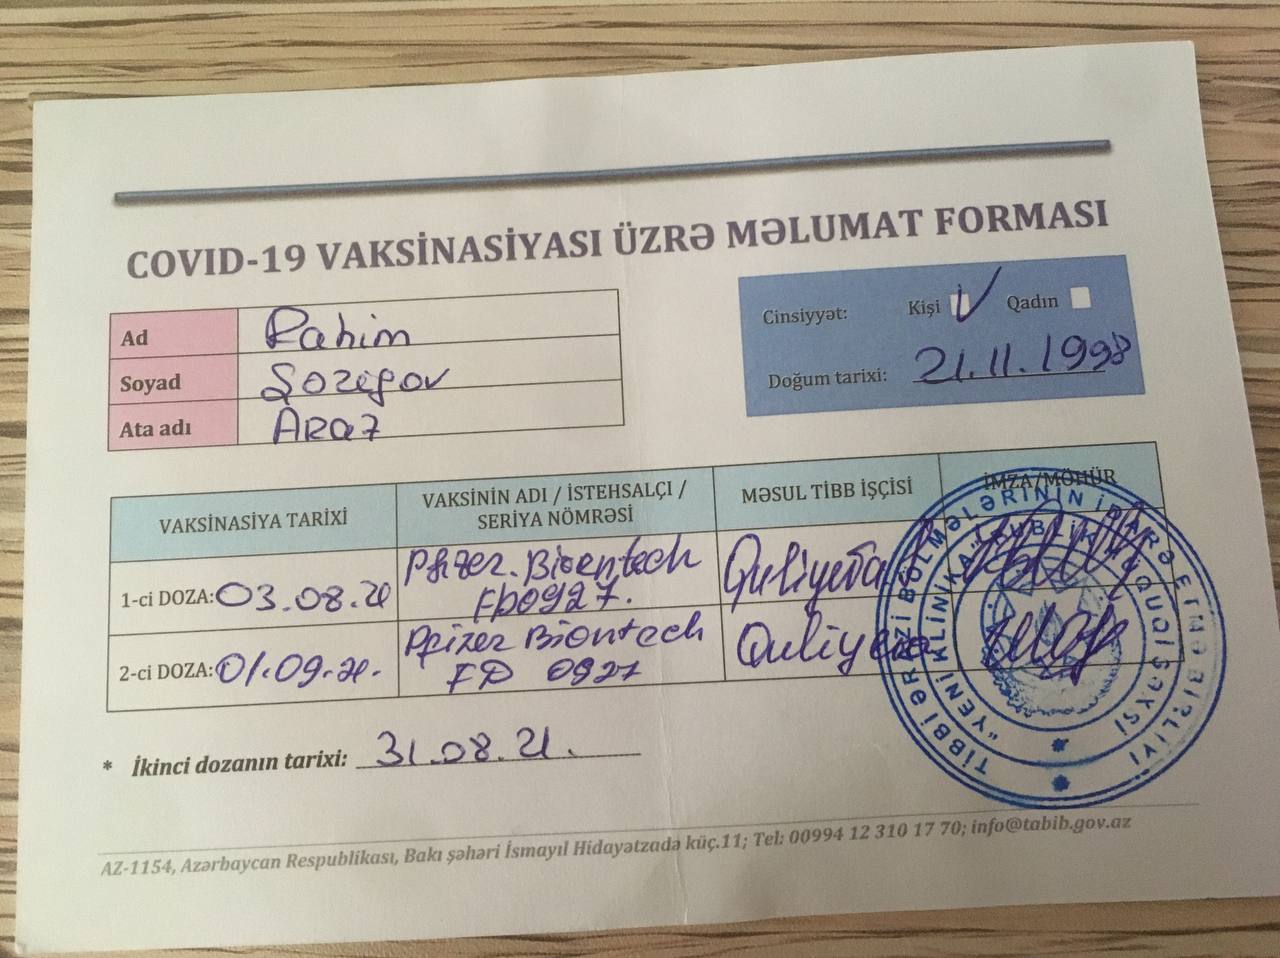 COVID-19 VAKSİNASİYASI ÜZRƏ MƏLUMAT FORMASI
Ad Rahim
Soyad
Ata adı Araz
Cinsiyyət: Kişi V Qadın
Doğum tarixi: 21.11.1998
VAKSİNASİYA TARİXİ
VAKSİNİN ADI / İSTEHSALÇI /
SERİYA NÖMRƏSİ
MƏSUL TİBB İŞÇİSİ
İMZA/MÖHÜR
1-ci DOZA: 03.08.21
Pfizer. Bioentech
FD0927.
Quliyeva
2-ci DOZA: 01.09.21.
Pfizer Biontech
FD 0927
Quliyeva
* İkinci dozanın tarixi: 31.08.21.
TİBBİ ƏRAZİ BÖLMƏLƏRİNİN İDARƏ ETMƏ BİRLİYİ
"YENİ KLİNİKA" PUBLİK HÜQUQİ ŞƏXSİ
AZ-1154, Azərbaycan Respublikası, Bakı şəhəri İsmayıl Hidayətzadə küç.11; Tel: 00994 12 310 17 70; info@tabib.gov.az